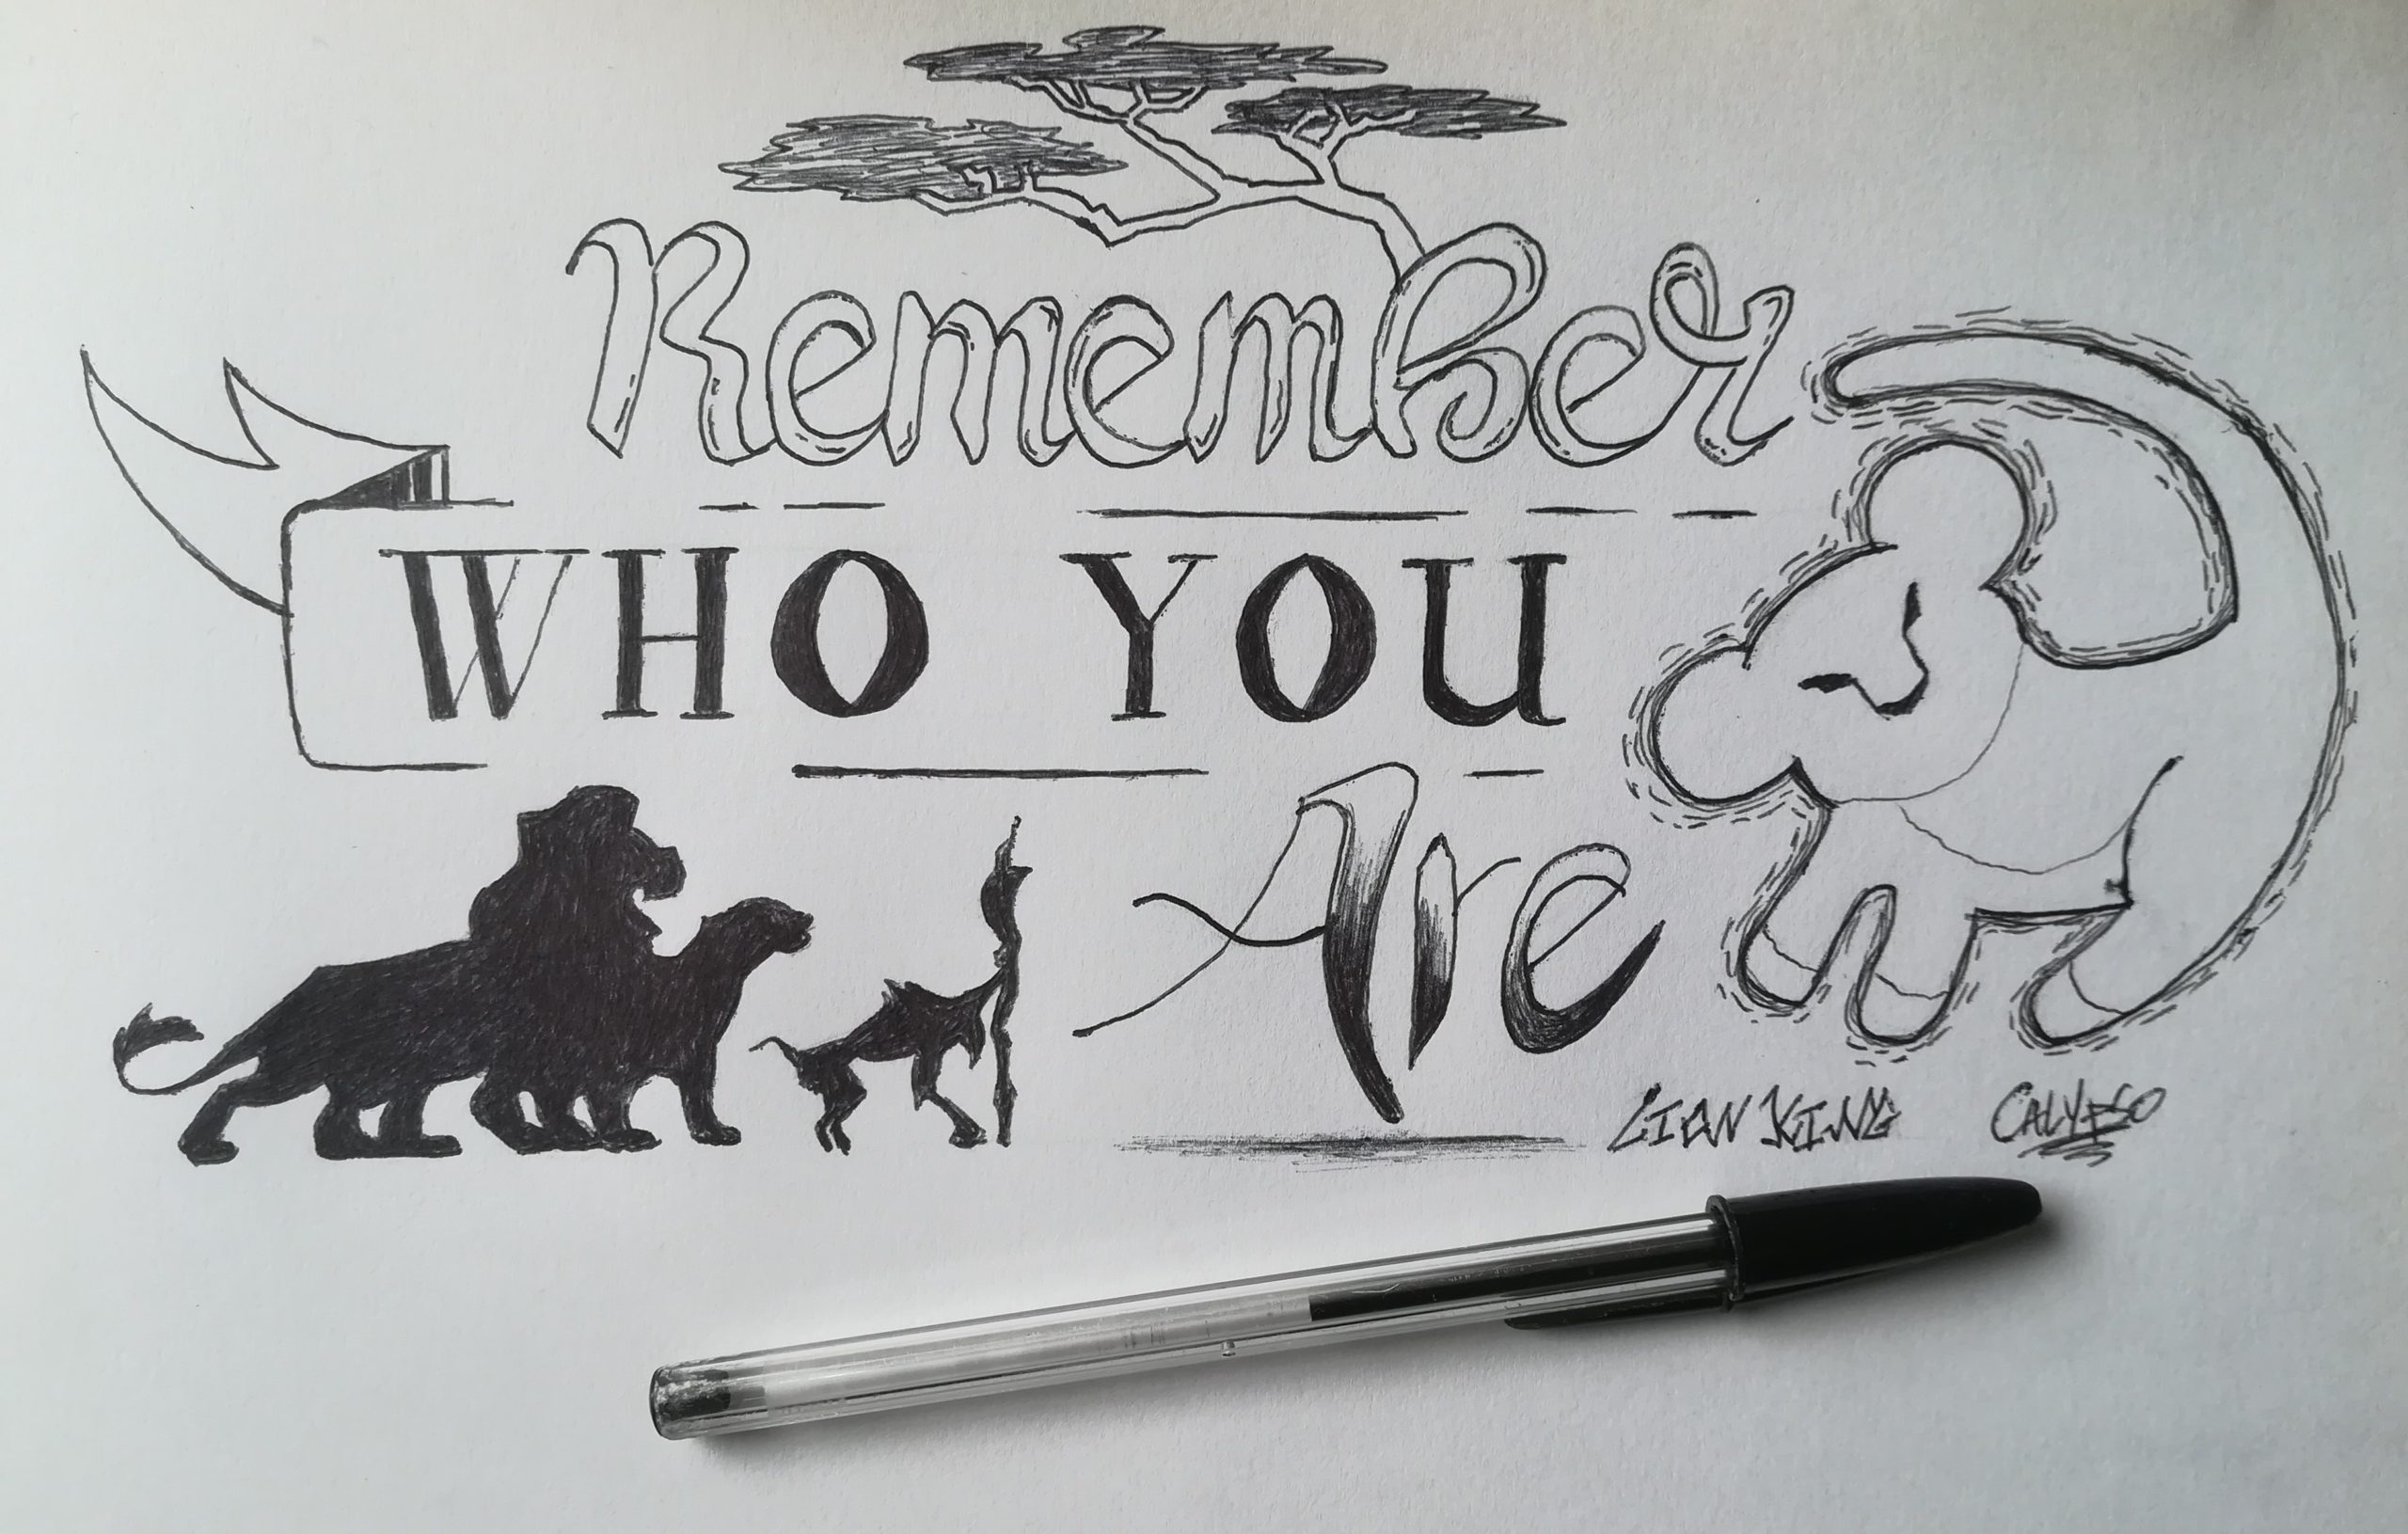 Remember
WHO YOU
Are
LION KING CALYPSO